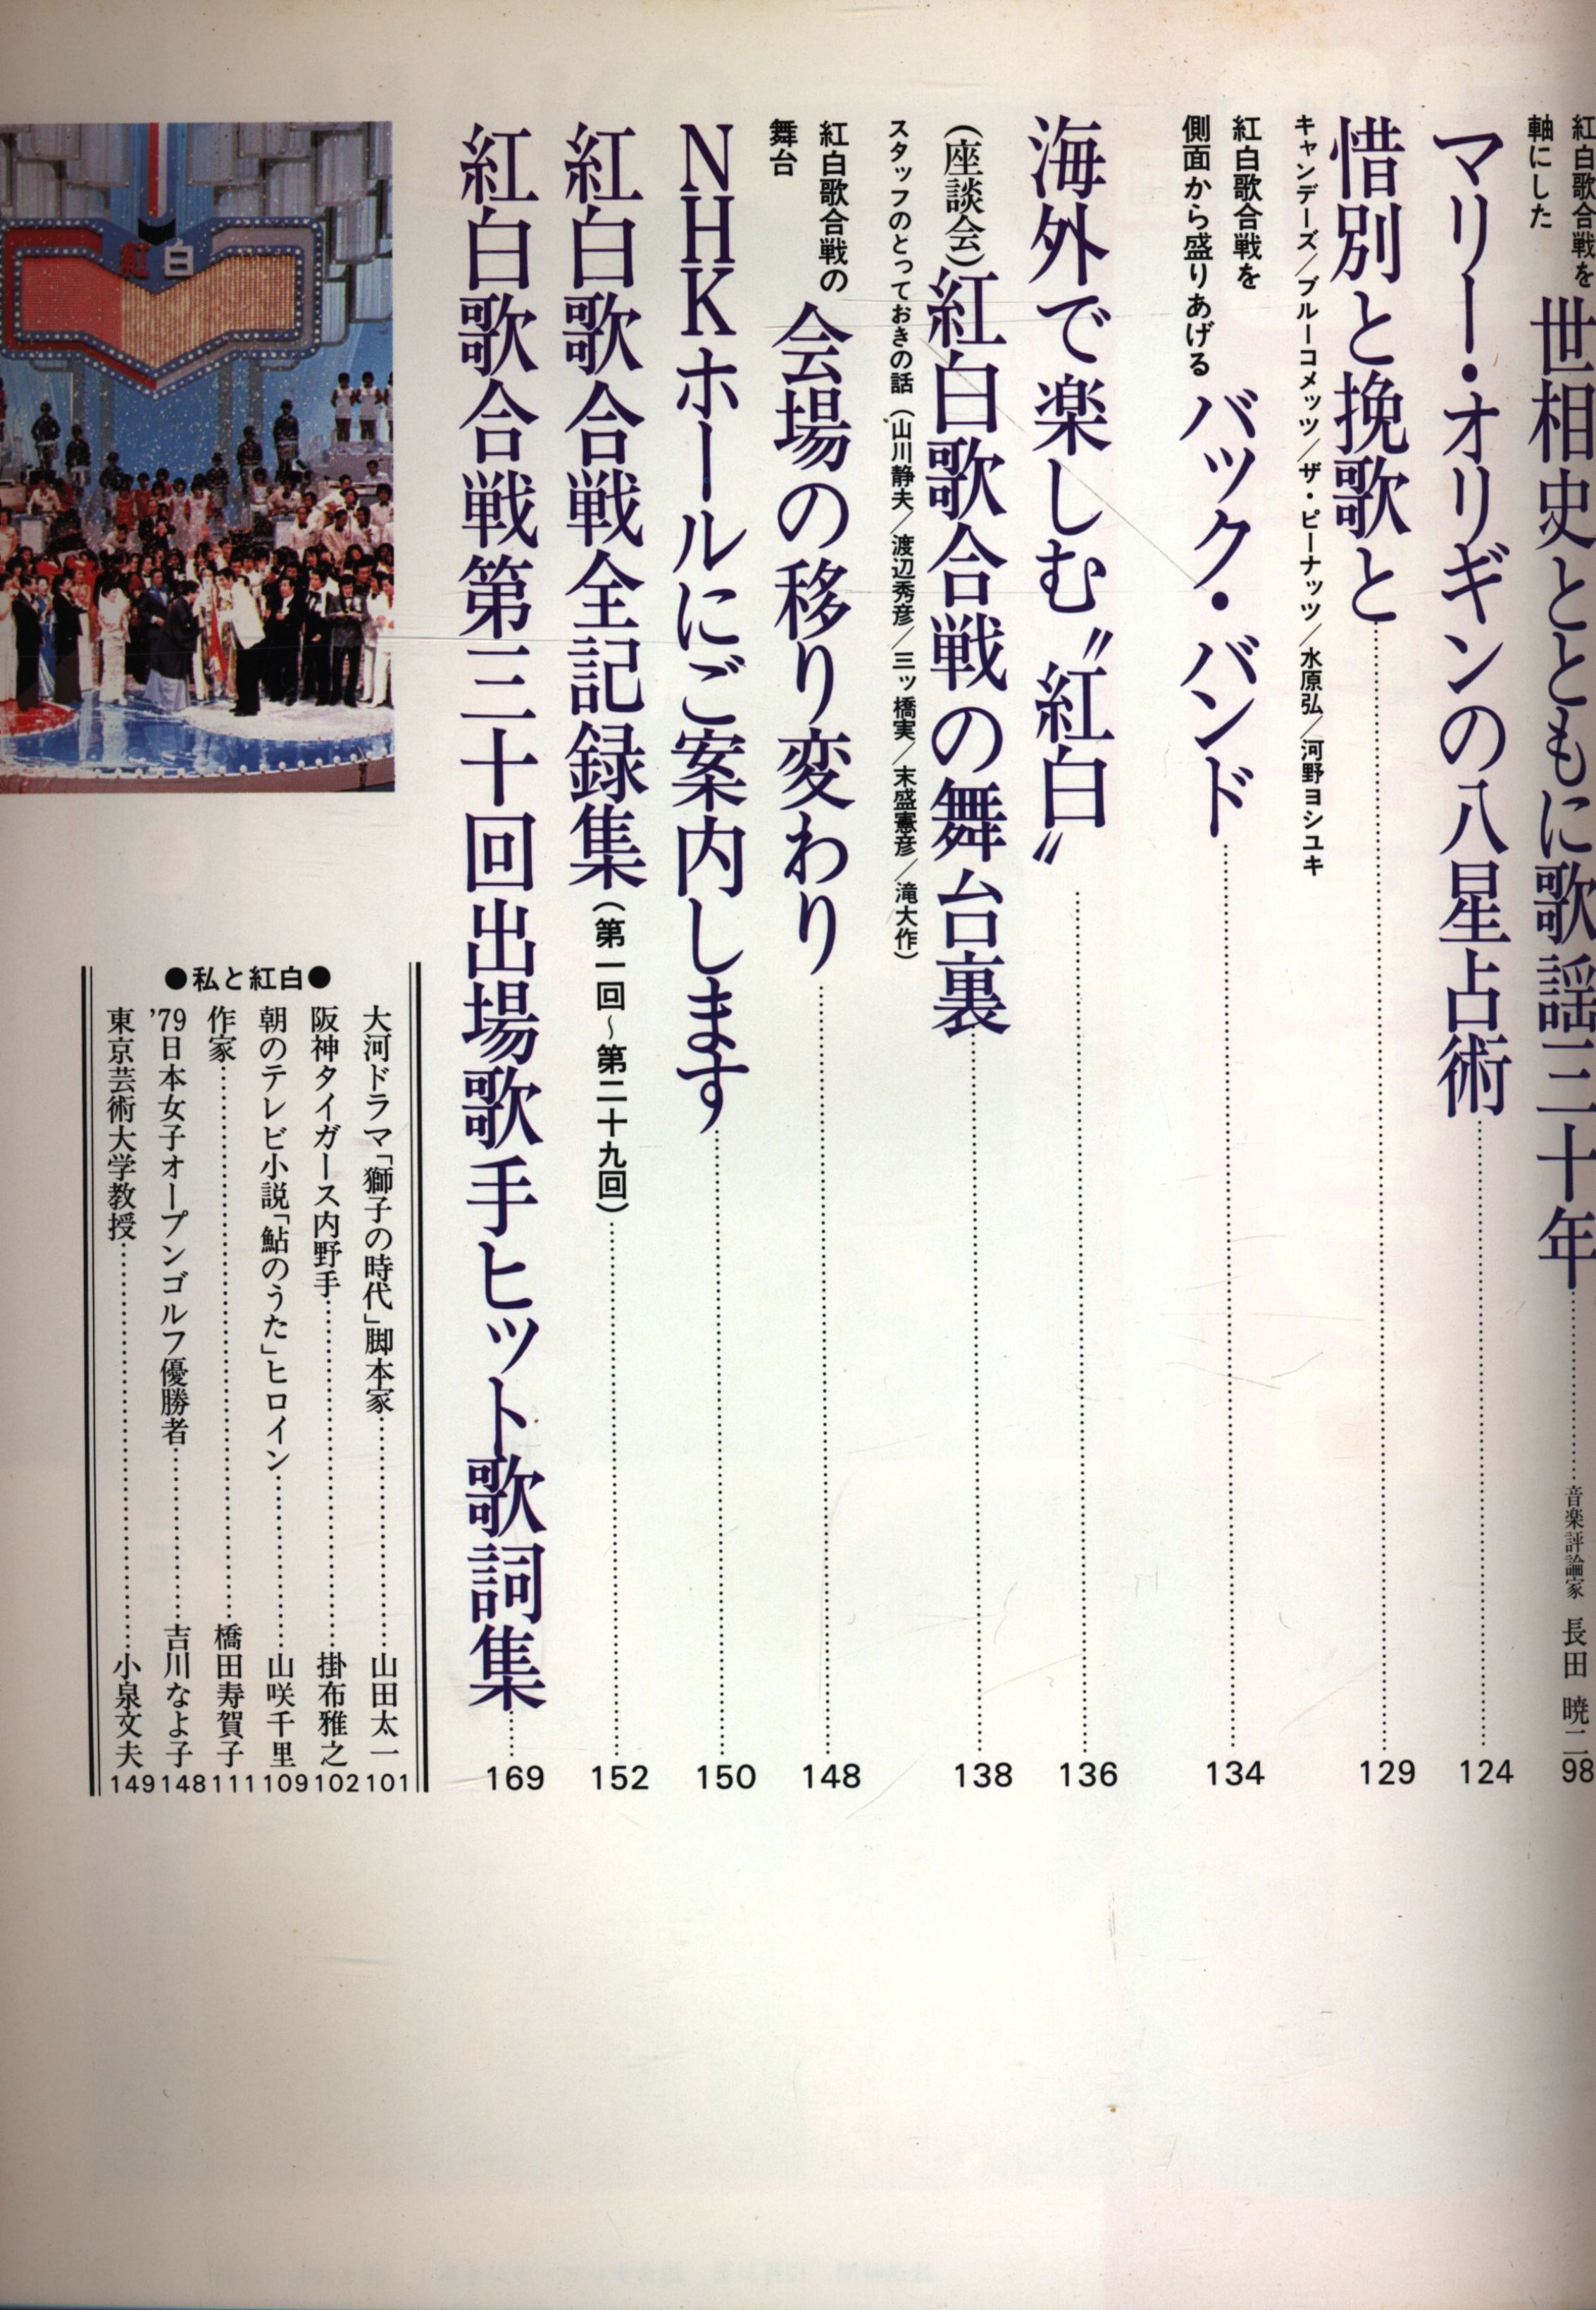 紅白歌合戦を
軸にした
世相史とともに歌謡三十年
音楽評論家 長田 暁二
98
マリー・オリギンの八星占術
124
惜別と挽歌と
129
キャンデーズ/ブルーコメッツ/ザ・ピーナッツ/水原弘/河野ヨシユキ
紅白歌合戦を
側面から盛りあげる
バック・バンド
134
海外で楽しむ〝紅白〟
136
(座談会)紅白歌合戦の舞台裏
138
スタッフのとっておきの話(山川静夫/渡辺秀彦/三ッ橋実/末盛憲彦/滝大作)
紅白歌合戦の
舞台
会場の移り変わり
148
NHKホールにご案内します
150
紅白歌合戦全記録集(第一回~第二十九回)
152
紅白歌合戦第三十回出場歌手ヒット歌詞集
169
紅白
●私と紅白●
大河ドラマ「獅子の時代」脚本家 山田太一 101
阪神タイガース内野手 掛布雅之 102
朝のテレビ小説「鮎のうた」ヒロイン 山咲千里 109
作家 橋田寿賀子 111
'79日本女子オープンゴルフ優勝者 吉川なよ子 148
東京芸術大学教授 小泉文夫 149